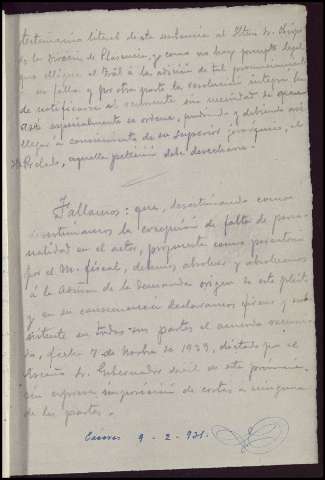 testimonio literal de esta sentencia al Iltmo Sr. Obispo
de la Diócesis de Plasencia, y como no hay precepto legal
que obligue al Tral á la adición de tal pronunciamiento
en fallo, y por otra parte la resolución íntegra ha
de notificarse al recurrente sin necesidad de que
especialmente se ordene, pudiendo y debiendo
llegar á conocimiento de su superior jerárquico, el
Prelado, aquella petición debe desecharse.
Fallamos: que, desestimando como
desestimamos la excepción de falta de perso-
nalidad en el actor, propuesta como perentoria
por el M. fiscal, debemos absolver y absolvemos
á la Admón de la demanda origen de este pleito
y en su consecuencia declaramos firme y sub-
sistente en todas sus partes el acuerdo recurri-
do, fecha 7 de Novbre de 1929, dictado por el
Excmo Sr. Gobernador civil de esta provincia,
sin expresa imposición de costas á ninguna
de las partes.
Cáceres 9 - 2 - 931.